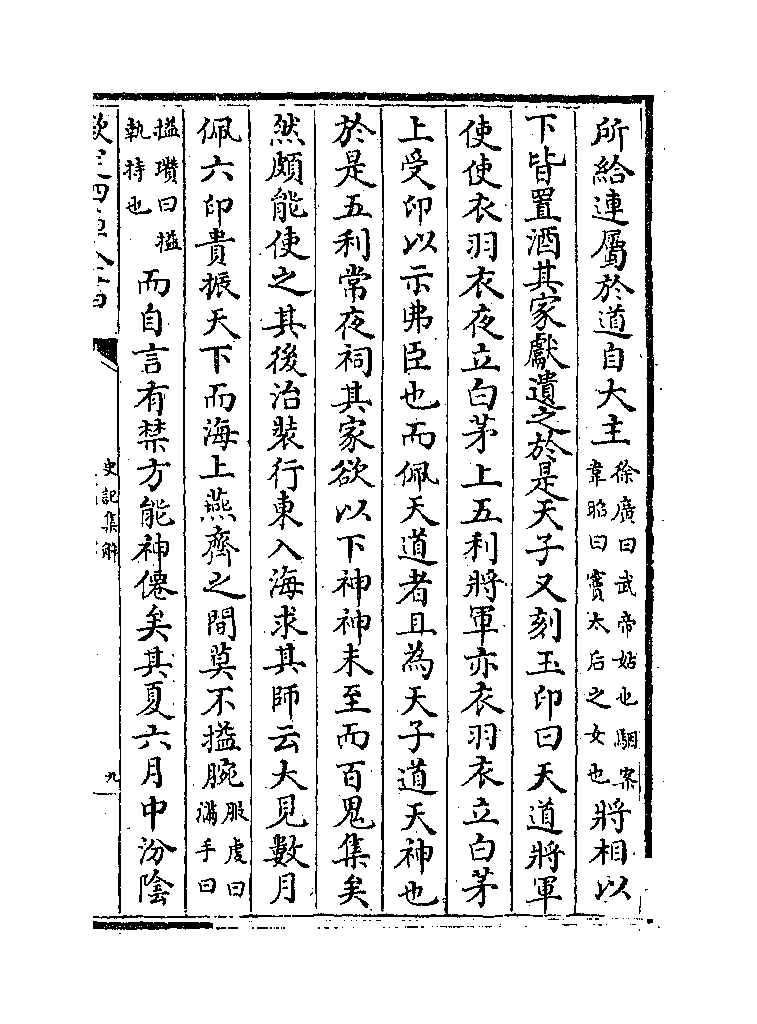 所給連屬於道自大主徐廣曰武帝姑也駰案韋昭曰竇太后之女也將相以
下皆置酒其家獻遺之於是天子又刻玉印曰天道將軍
使使衣羽衣夜立白茅上五利將軍亦衣羽衣立白茅
上受印以示弗臣也而佩天道者且為天子道天神也
於是五利常夜祠其家欲以下神神未至而百鬼集矣
然頗能使之其後治裝行東入海求其師云大見數月
佩六印貴振天下而海上燕齊之間莫不搤腕服虔曰滿手曰
搤瓚曰搤執持也而自言有禁方能神僊矣其夏六月中汾陰
史記集解
九